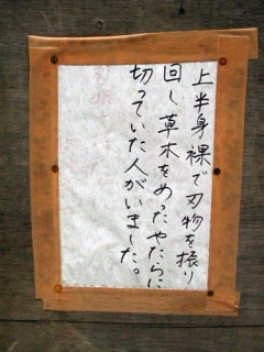 上半身裸で刃物を振り
回し草木をめったやたらに
切っていた人がいました。